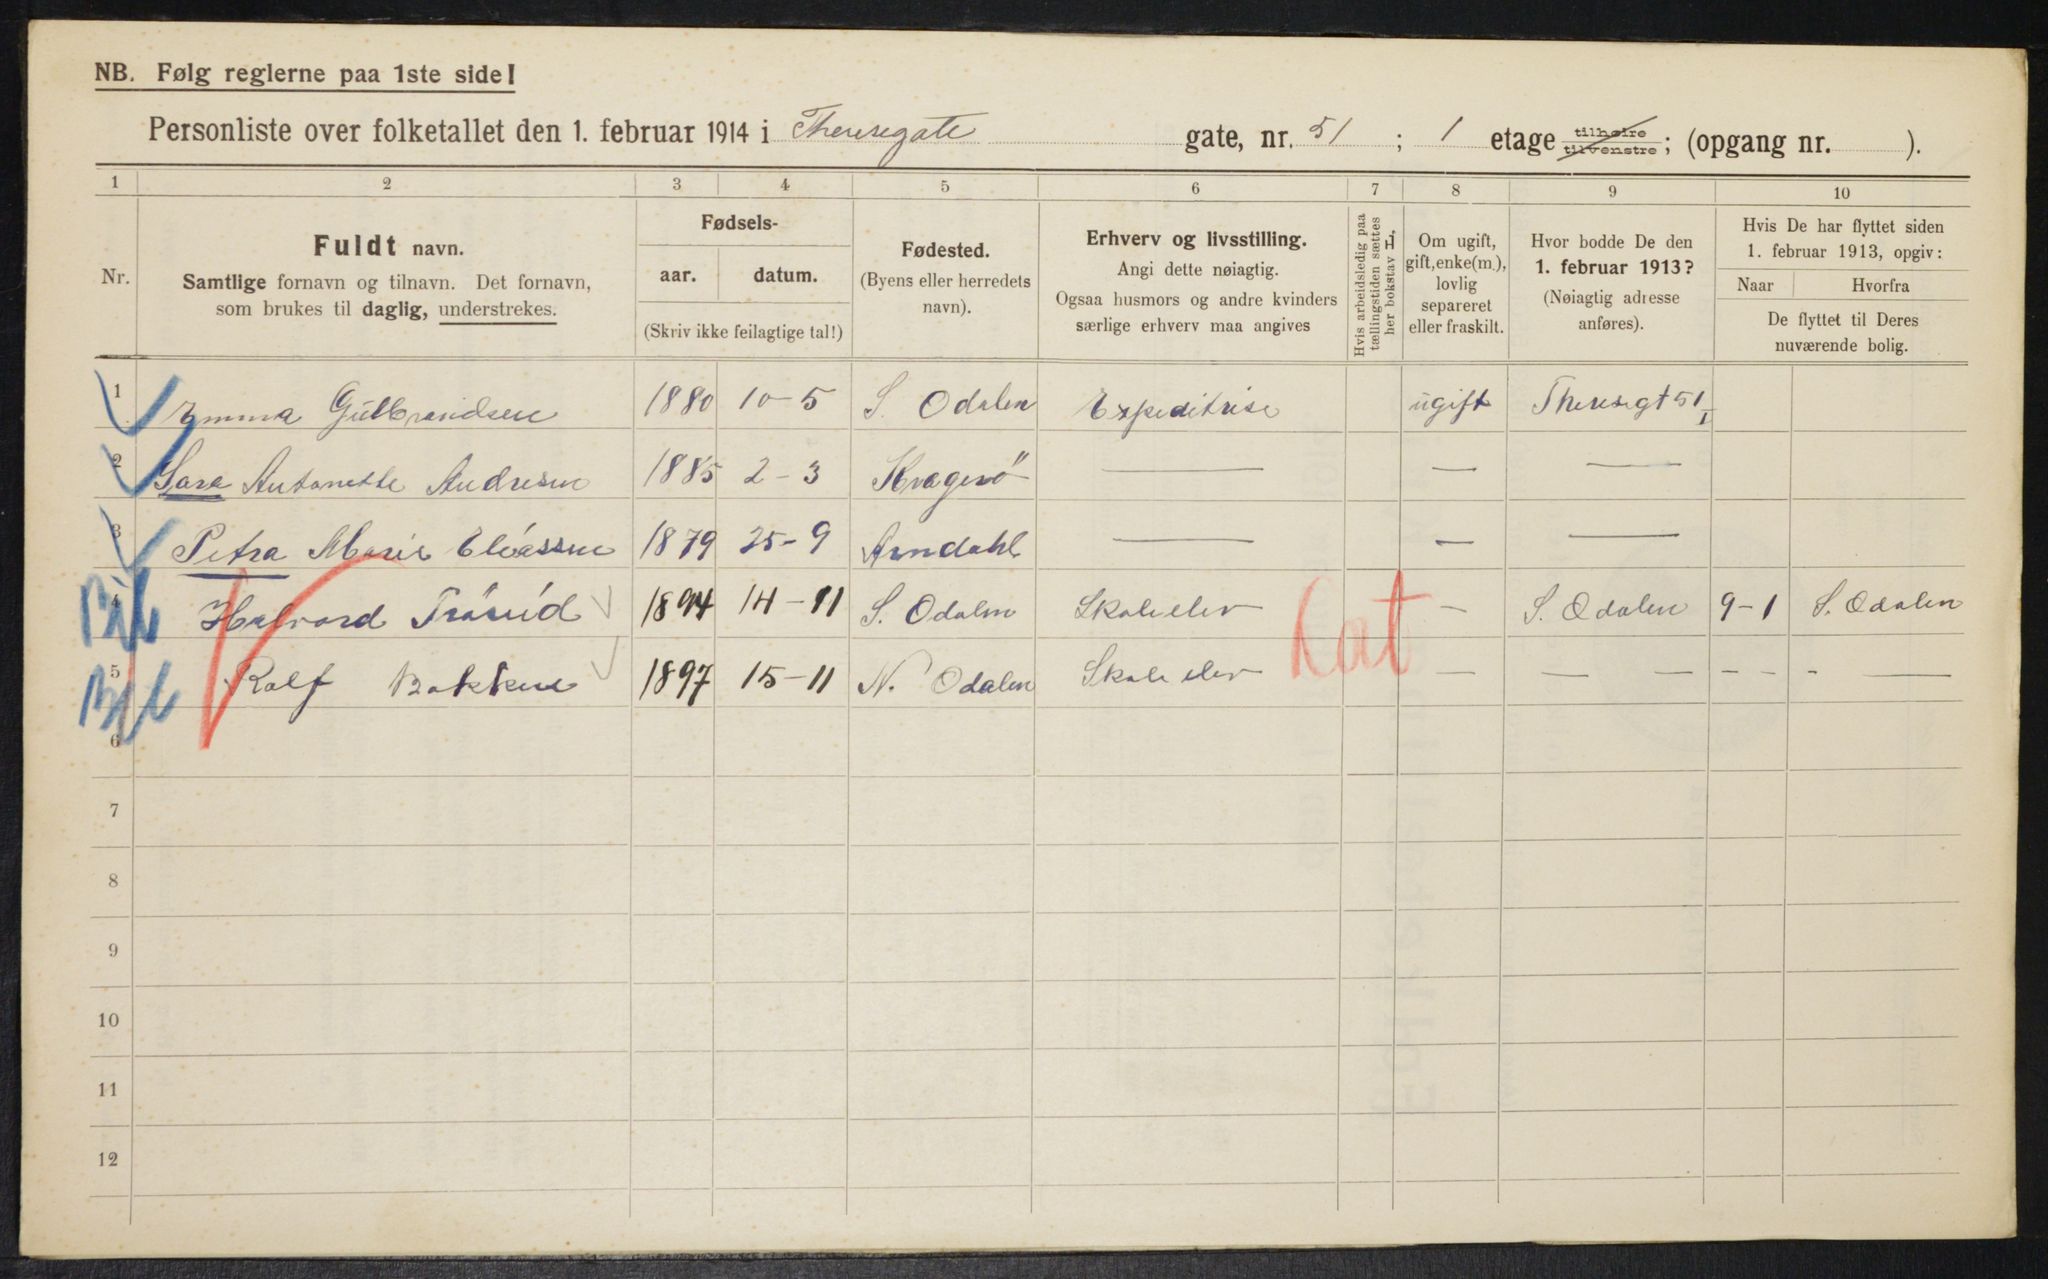 NB. Følg reglerne paa 1ste side!
Personliste over folketallet den 1. februar 1914 i Theresegate gate, nr. 51 ; 1 etage tilhøire tilvenstre ; (opgang nr. ).
1 2 3 4 5 6 7 8 9 10
Nr.
Fuldt navn.
Samtlige fornavn og tilnavn. Det fornavn,
som brukes til daglig, understrekes.
Fødsels-
aar. datum.
(Skriv ikke feilagtige tal!)
Fødested.
(Byens eller herredets
navn).
Erhverv og livsstilling.
Angi dette nøiagtig.
Ogsaa husmors og andre kvinders
særlige erhverv maa angives
Hvis arbeidsledig paa
tællingstiden sættes
her bokstav L.
Om ugift,
gift, enke(m.),
lovlig
separeret
eller fraskilt.
Hvor bodde De den
1. februar 1913?
(Nøiagtig adresse
anføres).
Hvis De har flyttet siden
1. februar 1913, opgiv:
Naar Hvorfra
De flyttet til Deres
nuværende bolig.
1 Emma Gulbrandsen 1880 10-5 S. Odalen Expeditrise ugift Theresegt 51 I
2 Sara Antonette Andresen 1885 2-3 Kragerö — — —
3 Petra Marie Eliassen 1879 25-9 Arndahl — — —
4 Halvard Trösud 1894 14-11 S. Odalen Skoleelev — S. Odalen 9-1 S. Odalen
5 Rolf Bakken 1897 15-11 N. Odalen Skoleelev — — — - - - - —
6
7
8
9
10
11
12